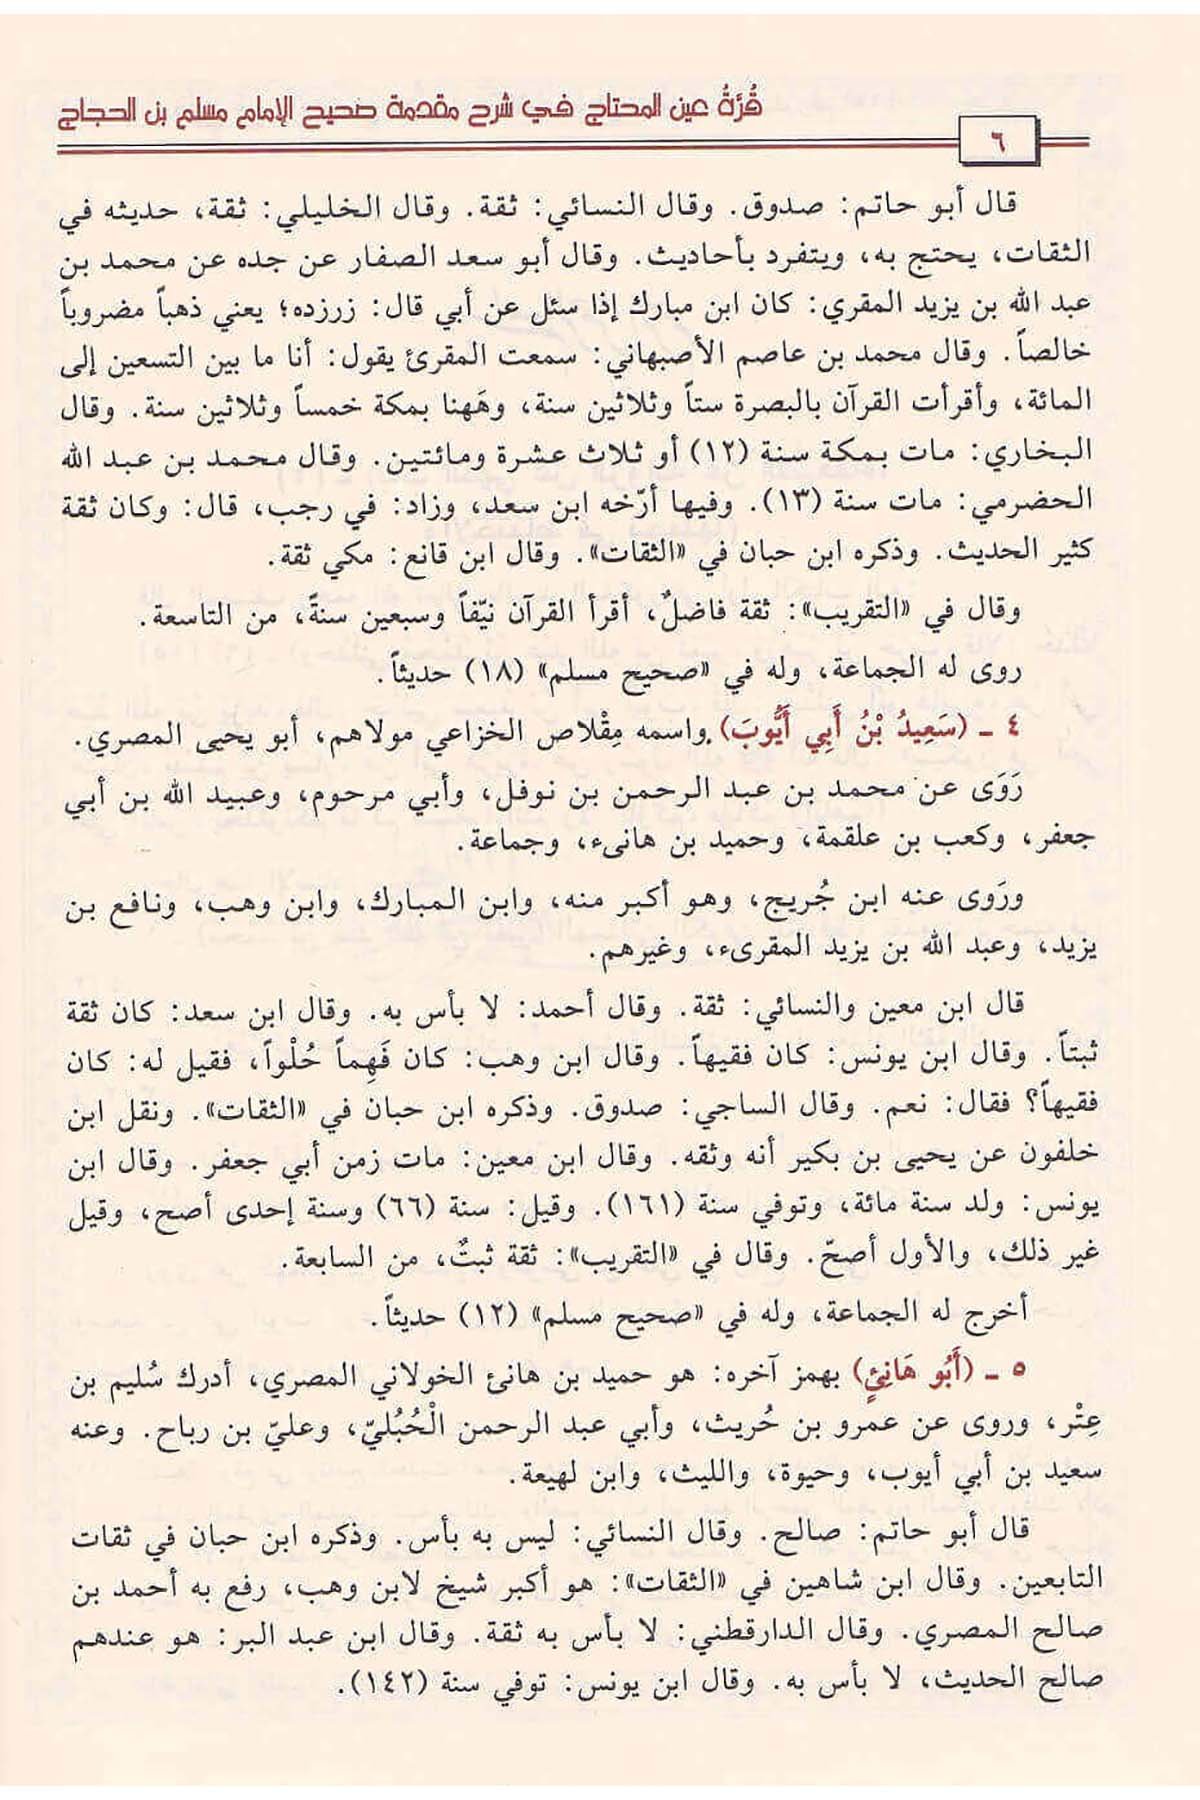 قُرَّةُ عين المحتاج في شرح مقدمة صحيح الإمام مسلم بن الحجاج
٦
قال أبو حاتم: صدوق. وقال النسائي: ثقة. وقال الخليلي: ثقة، حديثه في
الثقات، يحتج به، ويتفرد بأحاديث. وقال أبو سعد الصفار عن جده عن محمد بن
عبد الله بن يزيد المقري: كان ابن مبارك إذا سئل عن أبي قال: زرزده؛ يعني ذهباً مضروباً
خالصاً. وقال محمد بن عاصم الأصبهاني: سمعت المقرئ يقول: أنا ما بين التسعين إلى
المائة، وأقرأت القرآن بالبصرة ستاً وثلاثين سنة، وهَهنا بمكة خمساً وثلاثين سنة. وقال
البخاري: مات بمكة سنة (١٢) أو ثلاث عشرة ومائتين. وقال محمد بن عبد الله
الحضرمي: مات سنة (١٣). وفيها أرّخه ابن سعد، وزاد: في رجب، قال: وكان ثقة
كثير الحديث. وذكره ابن حبان في «الثقات». وقال ابن قانع: مكي ثقة.
وقال في «التقريب»: ثقة فاضلٌ، أقرأ القرآن نيّفاً وسبعين سنةً، من التاسعة.
روى له الجماعة، وله في «صحيح مسلم» (١٨) حديثاً.
٤ ـ (سَعِيدُ بْنُ أَبِي أَيُّوبَ) واسمه مِقْلاص الخزاعي مولاهم، أبو يحيى المصري.
رَوَى عن محمد بن عبد الرحمن بن نوفل، وأبي مرحوم، وعبيد الله بن أبي
جعفر، وكعب بن علقمة، وحميد بن هانىء، وجماعة.
ورَوى عنه ابن جُريج، وهو أكبر منه، وابن المبارك، وابن وهب، ونافع بن
يزيد، وعبد الله بن يزيد المقرىء، وغيرهم.
قال ابن معين والنسائي: ثقة. وقال أحمد: لا بأس به. وقال ابن سعد: كان ثقة
ثبتاً. وقال ابن يونس: كان فقيهاً. وقال ابن وهب: كان فَهِماً حُلْواً، فقيل له: كان
فقيهاً؟ فقال: نعم. وقال الساجي: صدوق. وذكره ابن حبان في «الثقات». ونقل ابن
خلفون عن يحيى بن بكير أنه وثقه. وقال ابن معين: مات زمن أبي جعفر. وقال ابن
يونس: ولد سنة مائة، وتوفي سنة (١٦١). وقيل: سنة (٦٦) وسنة إحدى أصح، وقيل
غير ذلك، والأول أصحّ. وقال في «التقريب»: ثقة ثبتٌ، من السابعة.
أخرج له الجماعة، وله في «صحيح مسلم» (١٢) حديثاً.
٥ ـ (أَبُو هَانِئٍ) بهمز آخره: هو حميد بن هانئ الخولاني المصري، أدرك سُليم بن
عِتْر، وروى عن عمرو بن حُريث، وأبي عبد الرحمن الْحُبُليّ، وعليّ بن رباح. وعنه
سعيد بن أبي أيوب، وحيوة، والليث، وابن لهيعة.
قال أبو حاتم: صالح. وقال النسائي: ليس به بأس. وذكره ابن حبان في ثقات
التابعين. وقال ابن شاهين في «الثقات»: هو أكبر شيخ لابن وهب، رفع به أحمد بن
صالح المصري. وقال الدارقطني: لا بأس به ثقة. وقال ابن عبد البر: هو عندهم
صالح الحديث، لا بأس به. وقال ابن يونس: توفي سنة (١٤٢).